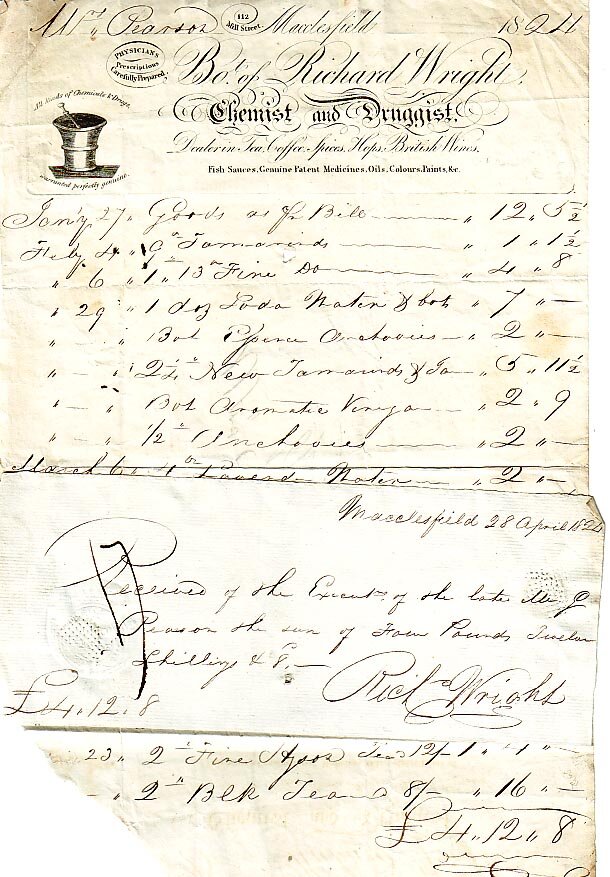 Mrs Pearson 112 Mill Street. Macclesfield 1824
PHYSICIANS Prescriptions Carefully Prepared.
Bot. of Richard Wright,
All Kinds of Chemicals & Drugs,
Chemist and Druggist.
Dealer in Tea, Coffee, Spices, Hops, British Wines,
Fish Sauces, Genuine Patent Medicines, Oils, Colours, Paints, &c.
warranted perfectly genuine.
Jany 27 " Goods as pr Bill " 12 " 5 1/2
Feby 4 " 9 oz Tamarinds " 1 " 1 1/2
" 6 " 1 " 13 oz Fine Do " 4 " 8
" 29 " 1 doz Soda Water & bots " 7 " —
" — " Bot Essence Anchovies " 2 " —
" — " 2 1/4 lb New Tamarinds & Ja " 5 " 11 1/2
" — " Bot Aromatic Vinegar " 2 " 9
" — " 1/2 lb Anchovies " 2 " —
March 6 " 4 oz Lavendr Water " 2 " —
Macclesfield 28 April 1824
Received of the Execut of the late Mr G
Pearson the sum of Four Pounds Twelve
Shillings & 8
£4.12.8
Richd Wright
23 " 2 lb Fine Hyson Tea 12/- 1 " 4 " —
— " 2 lb Blk Tea 8/- " 16 " —
£4 " 12 " 8